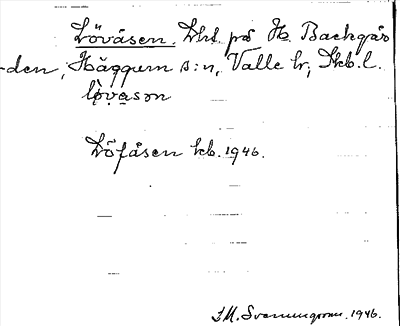 Lövåsen. Lht. på Hb. Backgår
-den, Häggum s:n, Valle hd, Skb.l.
lǫ̀vasən
Löfåsen kb. 1946.
I.M. Svenningsson. 1946.